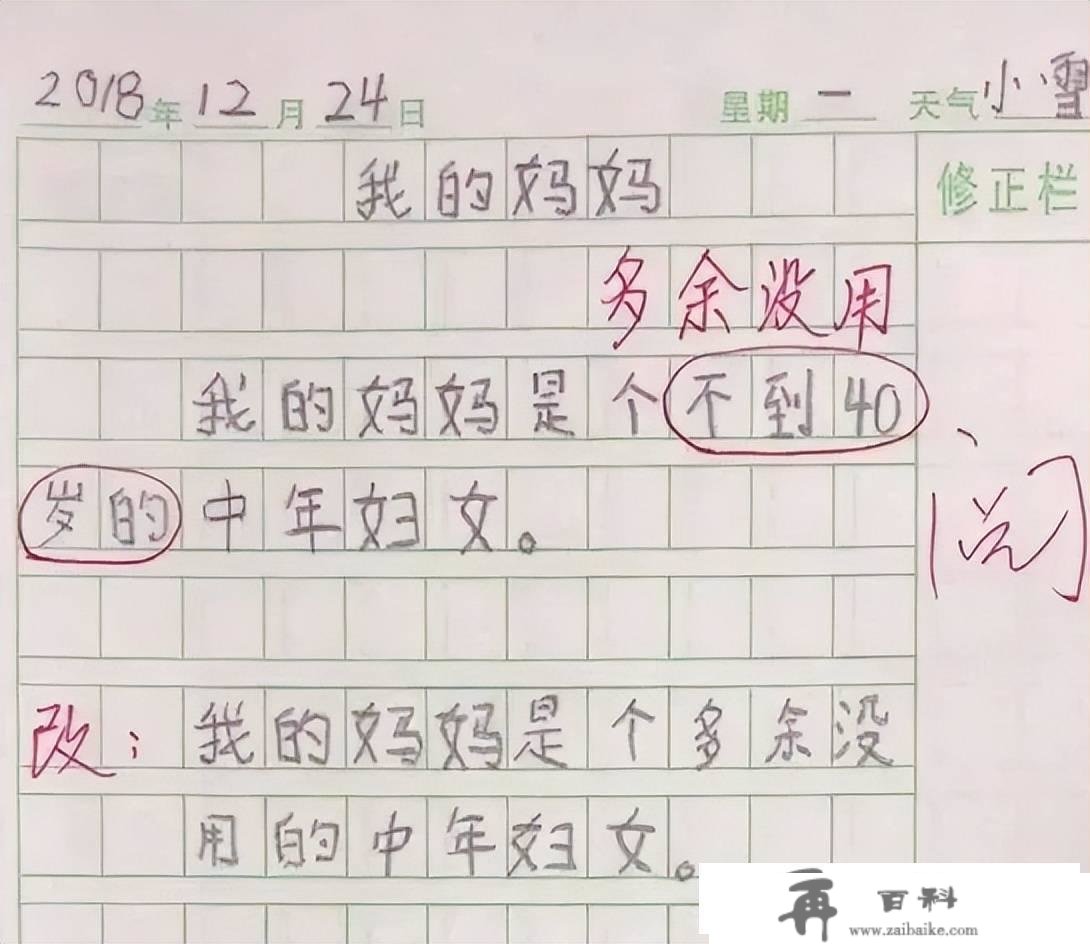 2018年12月24日 星期一 天气小雪
我的妈妈
修正栏
多余没用
我的妈妈是个不到40
岁的中年妇女。
阅
改：我的妈妈是个多余没
用的中年妇女。
再 百科
www.zaibaike.com